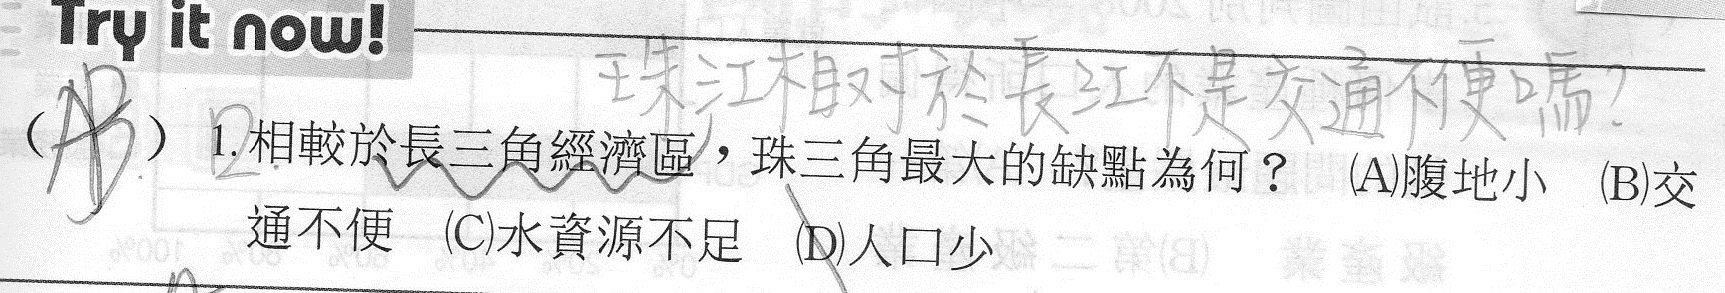 Try it now!
珠江相對於長江不是交通不便嗎?
( A B ) 1. 相較於長三角經濟區,珠三角最大的缺點為何? (A)腹地小 (B)交
通不便 (C)水資源不足 (D)人口少